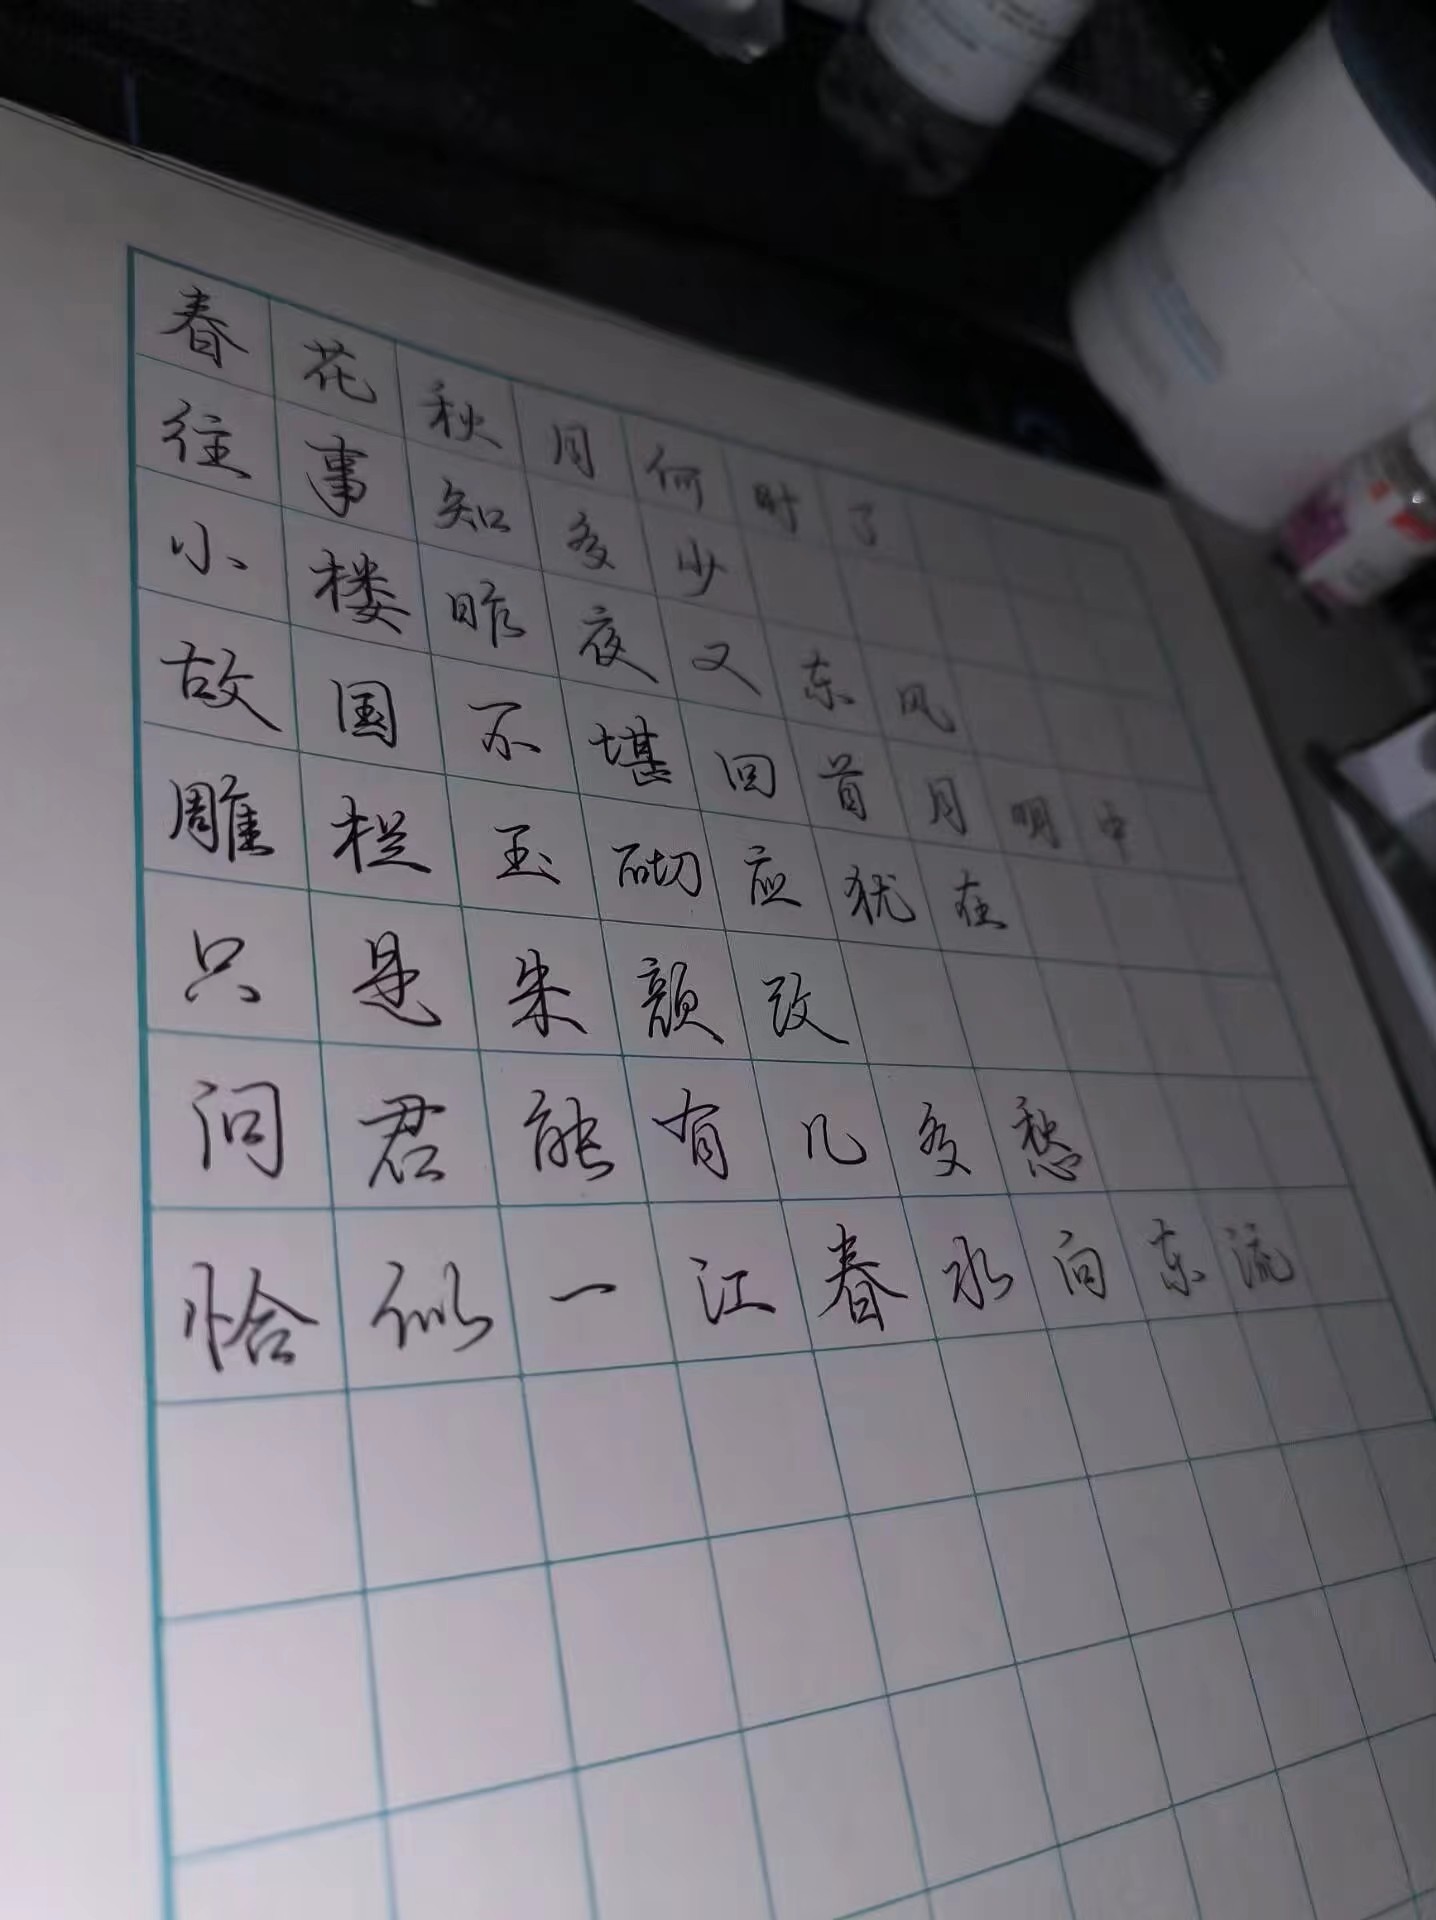 春花秋月何时了
往事知多少
小楼昨夜又东风
故国不堪回首月明中
雕栏玉砌应犹在
只是朱颜改
问君能有几多愁
恰似一江春水向东流